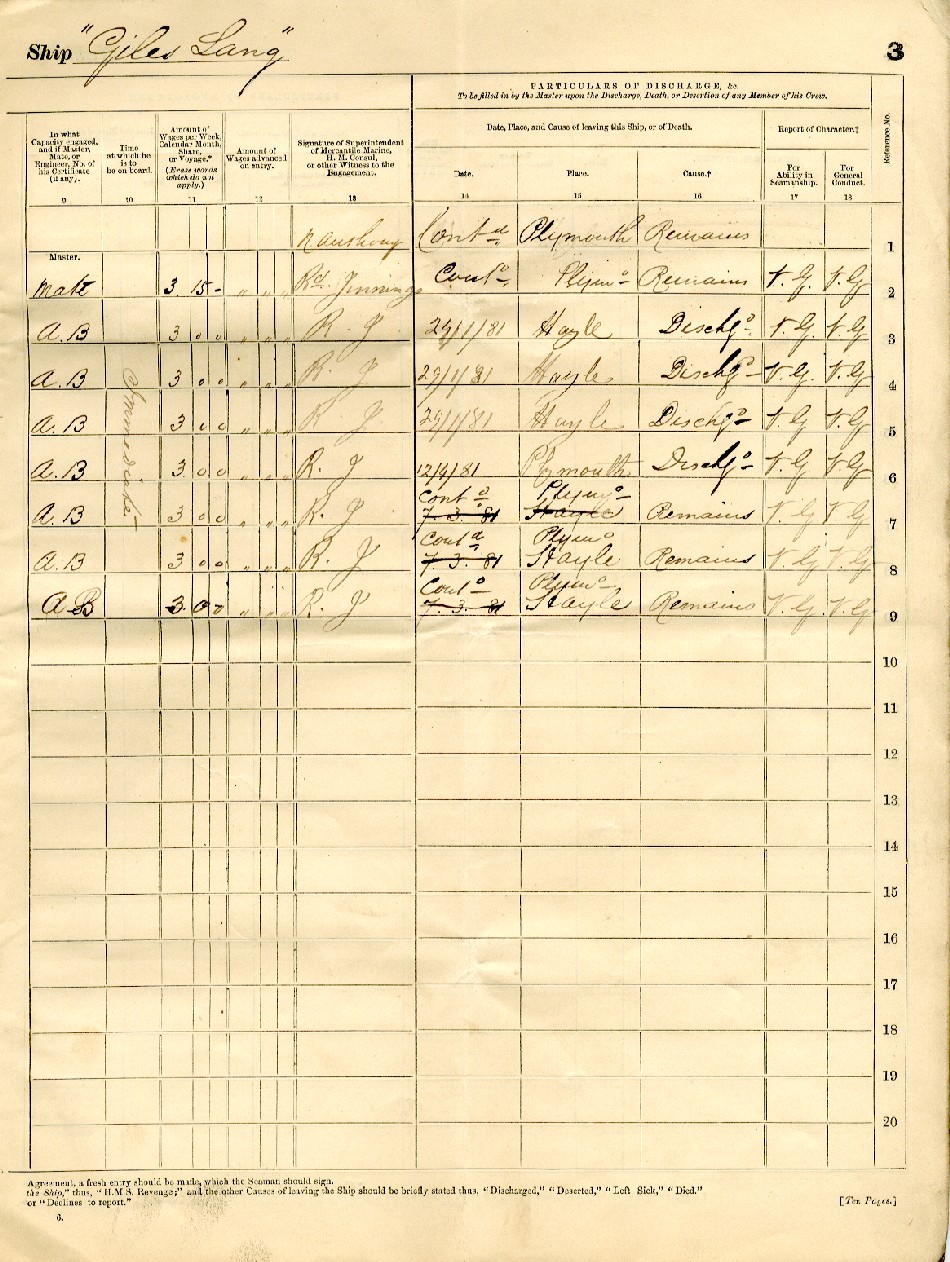 Ship "Giles Lang" 3
PARTICULARS OF DISCHARGE, &c.
To be filled in by the Master upon the Discharge, Death, or Desertion of any Member of his Crew.
In what Capacity engaged, and if Master, Mate, or Engineer, No. of his Certificate (if any).
Time at which he is to be on board.
Amount of Wages per Week, Calendar Month, Share, or Voyage.* (Erase words which do not apply.)
Amount of Wages advanced on entry.
Signature of Superintendent of Mercantile Marine, H. M. Consul, or other Witness to the Engagement.
Date, Place, and Cause of leaving this Ship, or of Death.
Report of Character.†
Reference No.
Date. Place. Cause.† For Ability in Seamanship. For General Conduct.
9 10 11 12 13 14 15 16 17 18
Contd Plymouth Remains 1
Master.
Mate 3 15 - " " " Rd. Jennings Contd Plymo Remains V. G. V. G 2
A. B 3 0 0 " " " R. J 29/1/81 Hayle Dischgd V. G. V. G 3
A. B 3 0 0 " " " R. J 29/1/81 Hayle Dischgd V. G. V. G 4
A. B 3 0 0 " " " R J 29/1/81 Hayle Dischgd V. G V. G 5
A. B 3 0 0 " " " R. J 12/4/81 Plymouth Dischgd V. G V. G 6
Contd Plymo
A. B 3 0 0 " " " R. J 7. 3. 81 Hayle Remains V. G V. G 7
Contd Plymo
A. B 3 0 0 " " " R. J 7. 3. 81 Hayle Remains V. G V. G 8
Contd Plymo
A B 3 0 0 " " " R. J 7. 3. 81 Hayle Remains V. G V. G 9
Immediately
10
11
12
13
14
15
16
17
18
19
20
Agreement, a fresh entry should be made, which the Seaman should sign.
the Ship," thus, "H.M S. Revenge;" and the other Causes of leaving the Ship should be briefly stated thus, "Discharged," "Deserted," "Left Sick," "Died."
or "Declines to report." [Ten Pages.]
6.